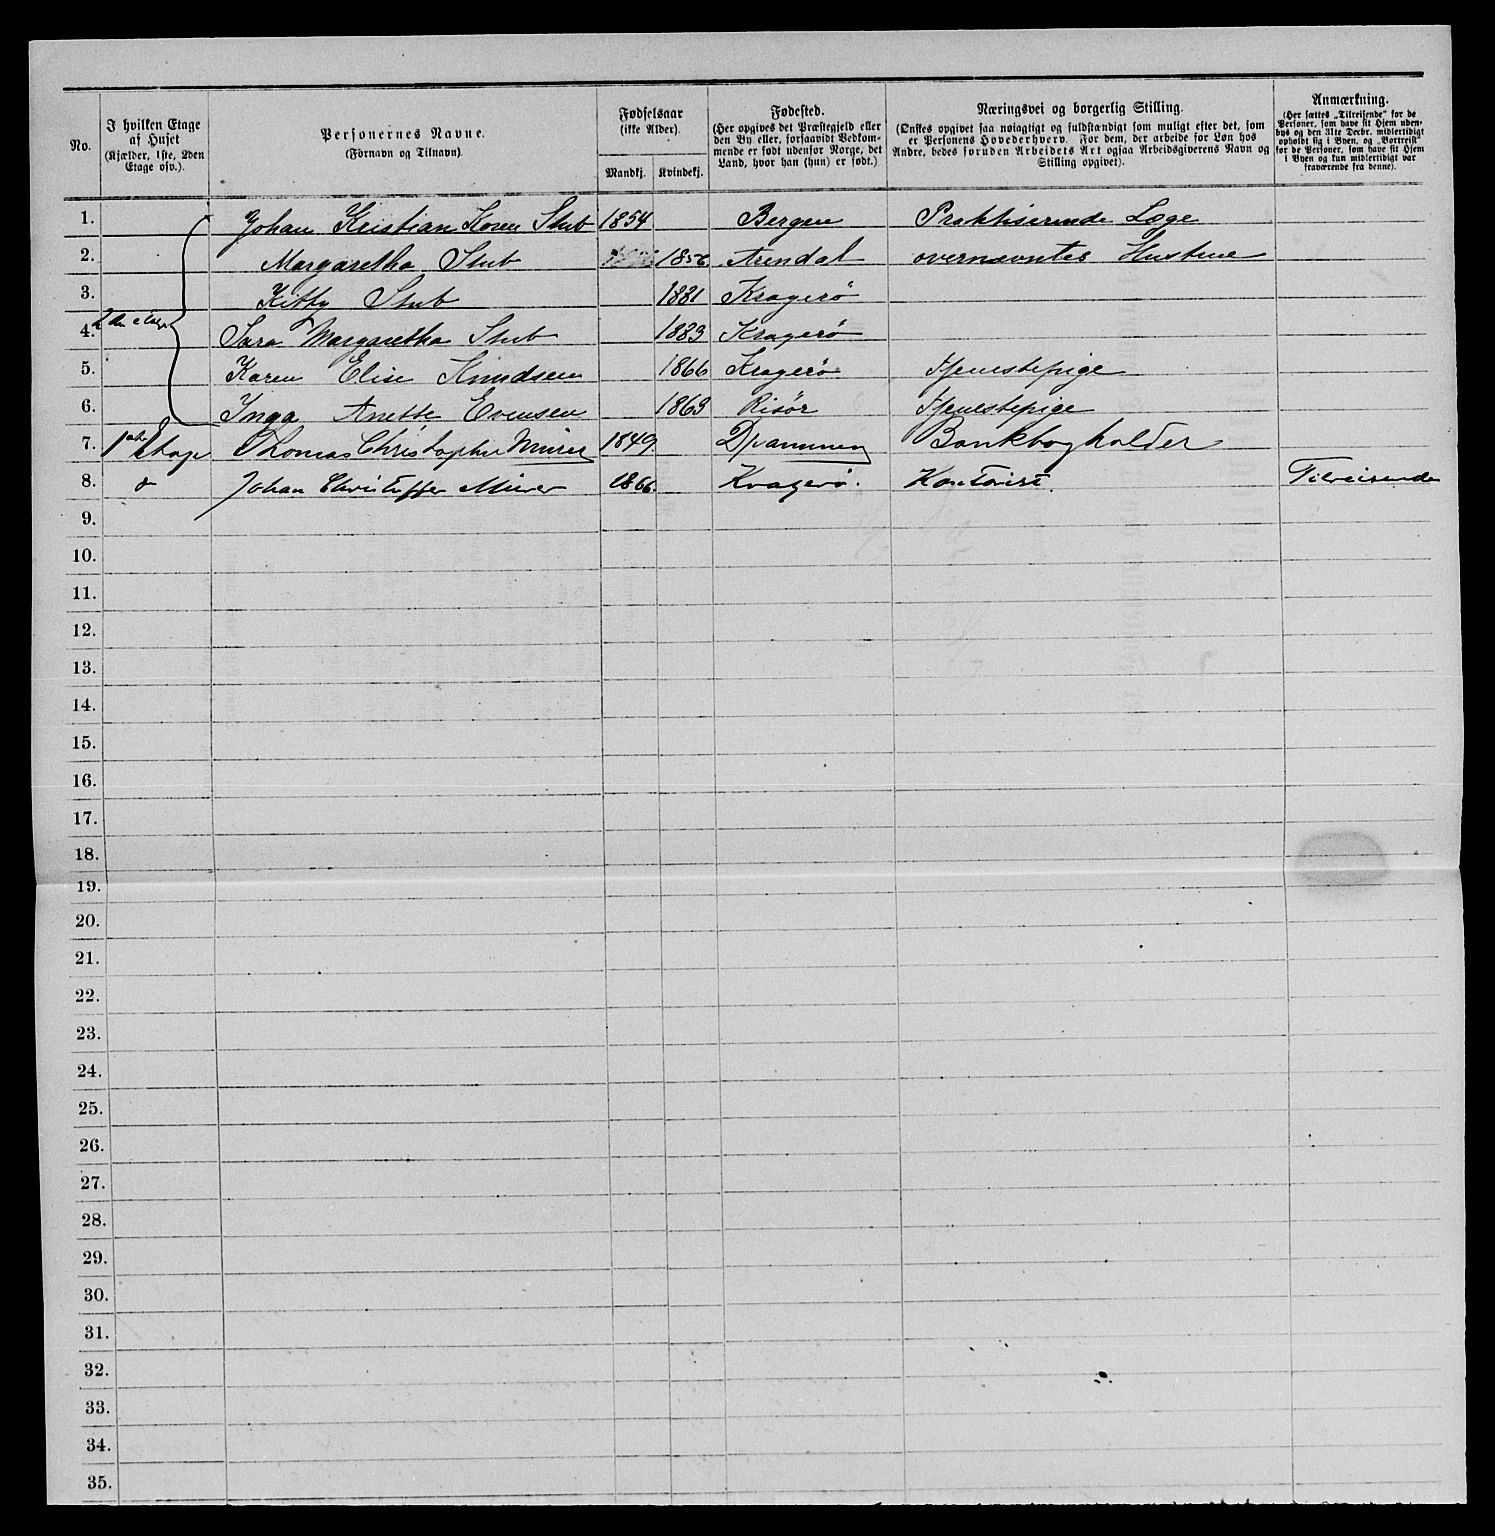 No.
I hvilken Etage
af Huset
(Kjælder, 1ste, 2den
Etage osv.).
Personernes Navne.
(Fornavn og Tilnavn).
Fødselsaar
(ikke Alder).
Mandkj. Kvindekj.
Fødested.
(Her opgives det Præstegjeld eller
den By eller, forsaavidt Vedkom-
mende er født udenfor Norge, det
Land, hvor han (hun) er født.)
Næringsvei og borgerlig Stilling.
(Ønskes opgivet saa nøiagtigt og fuldstændigt som muligt efter det, som
er Personens Hovederhverv. For dem, der arbeide for Løn hos
Andre, bedes foruden Arbeidets Art ogsaa Arbeidsgiverens Navn og
Stilling opgivet).
Anmærkning.
(Her sættes „Tilreisende“ for de
Personer, som have sit Hjem uden-
bys og den 31te Decbr. midlertidigt
opholdt sig i Byen, og „Bortreist“
for de Personer, som have sit Hjem
i Byen og kun midlertidigt var
fraværende fra denne).
1. Johan Kristian Koren Stub 1854 Bergen Praktiserende Læge
2. Margaretha Stub 1856 Arendal ovennævntes Hustrue
3. Kitty Stub 1881 Kragerö
4. 2den etage Sara Margaretha Stub 1883 Kragerö
5. Karen Elise Knudsen 1866 Kragerö Tjenestepige
6. Inga Anette Evensen 1863 Risör Tjenestepige
7. 1ste Etage Thomas Christopher Mürer 1849 Drammen Bankbogholder
8. Johan Christoffer Mürer 1866. Kragerø. Kontorist. Tilreisende
9.
10.
11.
12.
13.
14.
15.
16.
17.
18.
19.
20.
21.
22.
23.
24.
25.
26.
27.
28.
29.
30.
31.
32.
33.
34.
35.